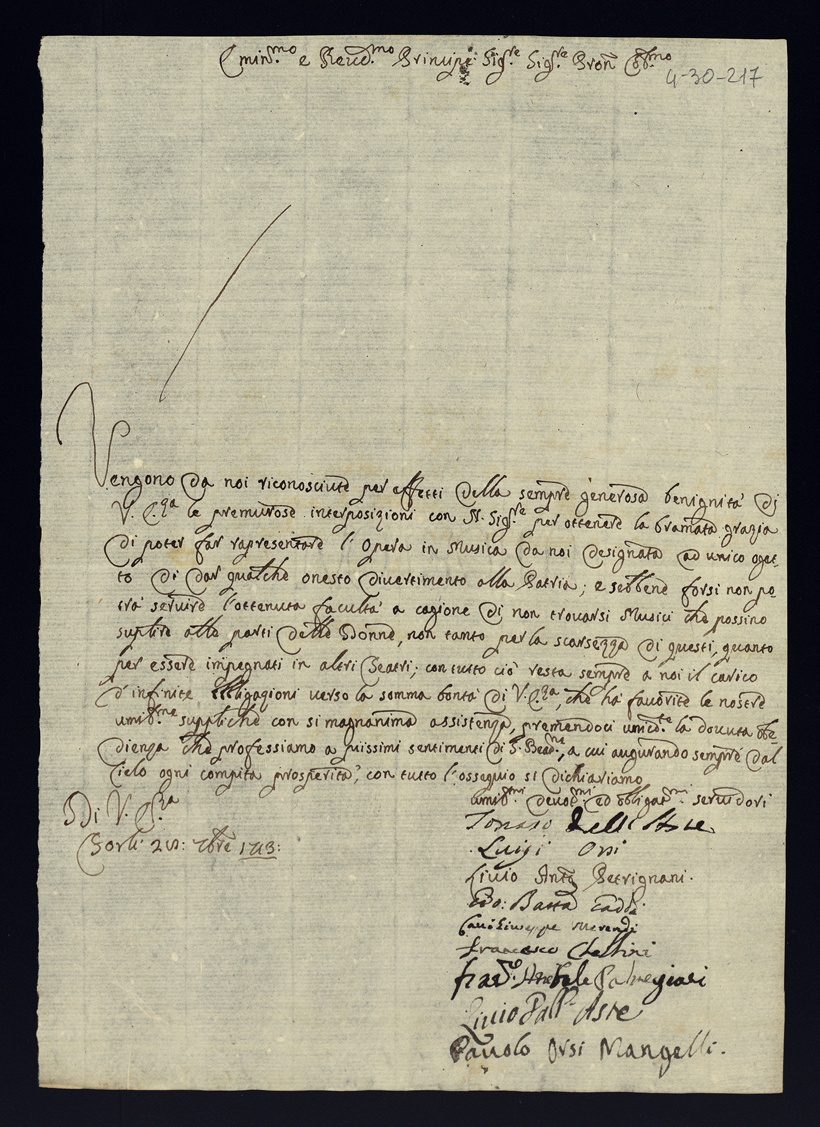 Emin.mo e Reud.mo Principe Sig.re Sig.re Pron Ob.mo
4-30-217
Vengono da noi riconosciute per effetti della sempre generosa benignità di
V. E.za le premurose interposizioni con N. Sig.re per ottenere la bramata grazia
di poter far rapresentare l'Opera in Musica da noi designata ad unico oget-
to di dar qualche onesto divertimento alla Patria; e sebbene forsi non po-
trà seruire l'ottenuta facultà a cagione di non trouarsi Musici che possino
suplire alle parti delle Donne, non tanto per la scarsezza di questi, quanto
per essere impegnati in altri Teatri; con tutto ciò resta sempre a noi il carico
d'infinite obligagioni uerso la somma bontà di V. E.za, che hà favorite le nostre
umil.me suppliche con si magnanima assistenza, premendoci umil.te la douuta obe-
dienza che professiamo a piissimi sentimenti di S. Bead.ne, a cui augurando sempre dal
cielo ogni compita prosperità, con tutto l'ossequio si dichiariamo
Di V. E.za
umil.mi deuot.mi ed obligat.mi seruidori
Forlì 1713:
Tomaso delle Aste
Luigi Orsi
Liuio Ant.o Petrignani.
Gio: Batta
Cau. Giuseppe Merendi
Francesco
Palmegiani
Liuio dall'Aste
Pauolo Orsi Mangelli.